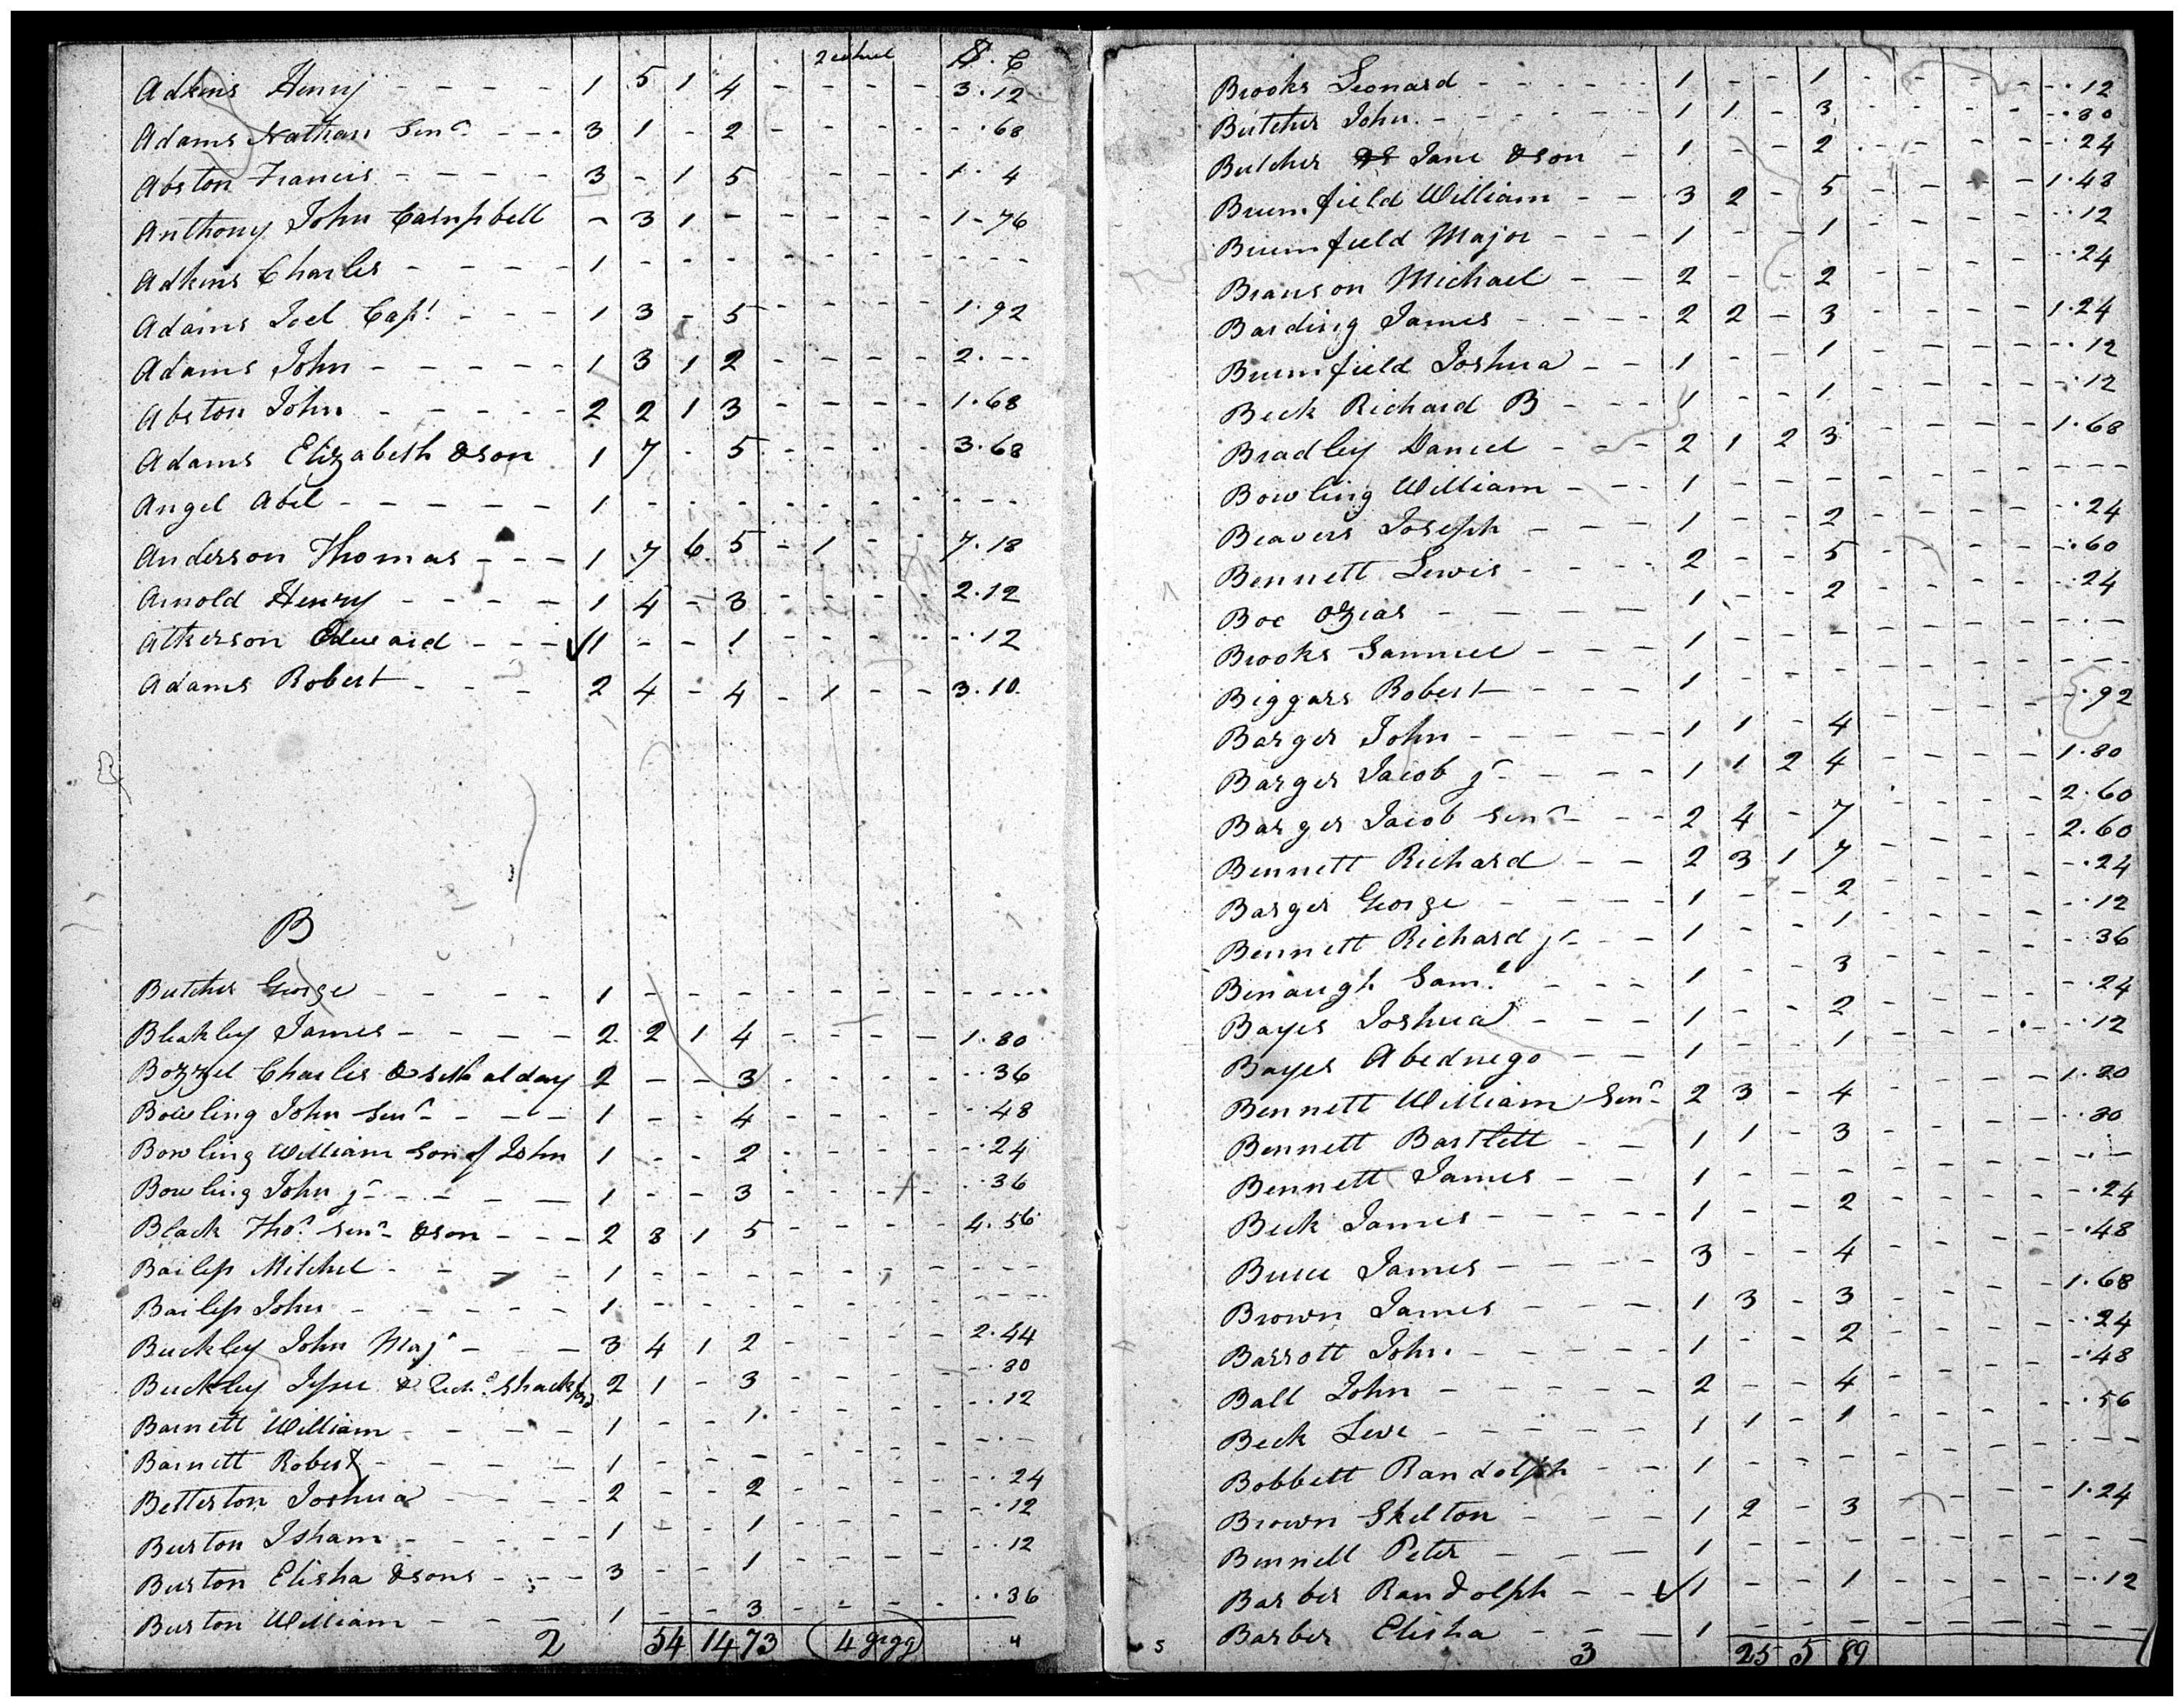 2 wheel $. C
Adkins Henry - - - - 1 5 1 4 - - - - 3.12
Adams Nathan Senr - - - 3 1 - 2 - - - - - .68
Abston Francis - - - - 3 - 1 5 - - - - 1. 4
Anthony John Campbell - 3 1 - - - - - 1-76
Adkins Charles - - - - 1 - - - - - - - - - -
Adams Joel Capt - - - 1 3 - 5 - - - - 1.92
Adams John - - - - - 1 3 1 2 - - - - 2. - -
Abston John - - - - - 2 2 1 3 - - - - 1.68
Adams Elizabeth & son 1 7 - 5 - - - - 3.68
Angel Abel - - - - - 1 - - - - - - - - - -
Anderson Thomas - - - 1 7 6 5 - 1 - - 7.18
Arnold Henry - - - - 1 4 - 3 - - - - 2.12
Atkerson Edward - - - ✓ 1 - - 1 - - - - - .12
Adams Robert - - - 2 4 - 4 - 1 - - 3.10
B
Butcher George - - - - 1 - - - - - - - - - - -
Blakley James - - - - 2 2 1 4 - - - - 1.80
Bozzel Charles & Seth alday 2 - - 3 - - - - - .36
Bowling John Senr - - - - 1 - - 4 - - - - - .48
Bowling William Son of John 1 - - 2 - - - - - .24
Bowling John jr - - - - 1 - - 3 - - - - - .36
Black Thos Senr & son - - - 2 8 1 5 - - - - 4.56
Bailess Mitchel - - - - 1 - - - - - - - - - -
Bailess John - - - - - 1 - - - - - - - - - -
Buckley John Majr - - - 3 4 1 2 - - - - 2.44
Buckley Jesse & 2 1 - 3 - - - - - .80
Barnett William - - - - 1 - - 1 - - - - - .12
Barnett Robert - - - - 1 - - - - - - - - . -
Betterton Joshua - - - - 2 - - 2 - - - - - .24
Burton Isham - - - - 1 - - 1 - - - - - .12
Burton Elisha & sons - - - 3 - - 1 - - - - - .12
Burton William - - - 1 - - 3 - - - - - .36
2 54 14 73 4 4
Brooks Leonard - - - - - 1 - - 1 - - - - - .12
Butcher John - - - - - 1 1 - 3 - - - - - .80
Butcher Jane & son - 1 - - 2 - - - - - .24
Brumfield William - - 3 2 - 5 - - - - 1.48
Brumfield Major - - - 1 - - 1 - - - - - .12
Branson Michael - - 2 - - 2 - - - - - .24
Barding James - - - - 2 2 - 3 - - - - 1.24
Brumfield Joshua - - 1 - - 1 - - - - - .12
Beck Richard B - - - 1 - - 1 - - - - - .12
Bradley Daniel - - - 2 1 2 3 - - - - 1.68
Bowling William - - - 1 - - - - - - - - - -
Beavers Joseph - - - 1 - - 2 - - - - - .24
Bennett Lewis - - - - 2 - - 5 - - - - - .60
Boe Ozias - - - - - 1 - - 2 - - - - - .24
Brooks Samuel - - - 1 - - - - - - - - . -
Biggars Robert - - - 1 - - - - - - - - - -
Barger John - - - - - 1 1 - 4 - - - - - .92
Barger Jacob jr - - - 1 1 2 4 - - - - 1.80
Barger Jacob Senr - - - 2 4 - 7 - - - - 2.60
Bennett Richard - - 2 3 1 7 - - - - 2.60
Barger George - - - - 1 - - 2 - - - - - .24
Bennett Richard jr - - - 1 - - 1 - - - - - .12
Benaugh Saml - - - 1 - - 3 - - - - - .36
Bayes Joshua - - - 1 - - 2 - - - - - .24
Bayes Abednego - - 1 - - 1 - - - - - .12
Bennett William Senr 2 3 - 4 - - - - 1.80
Bennett Bartlett - - 1 1 - 3 - - - - - .80
Bennett James - - 1 - - - - - - - - . -
Beck James - - - - - 1 - - 2 - - - - - .24
Bruce James - - - - 3 - - 4 - - - - - .48
Brown James - - - 1 3 - 3 - - - - 1.68
Barrott John - - - - - 1 - - 2 - - - - - .24
Ball John - - - - - 2 - - 4 - - - - - .48
Beck Levi - - - - - 1 1 - 1 - - - - - .56
Bobbett Randolph - - 1 - - - - - - - - - -
Brown Skelton - - - 1 2 - 3 - - - - 1.24
Bennett Peter - - - 1 - - - - - - - - - -
Barber Randolph - - ✓ 1 - - 1 - - - - - .12
Barber Elisha - - - 1 - - - - - - - - - -
5 3 25 5 89